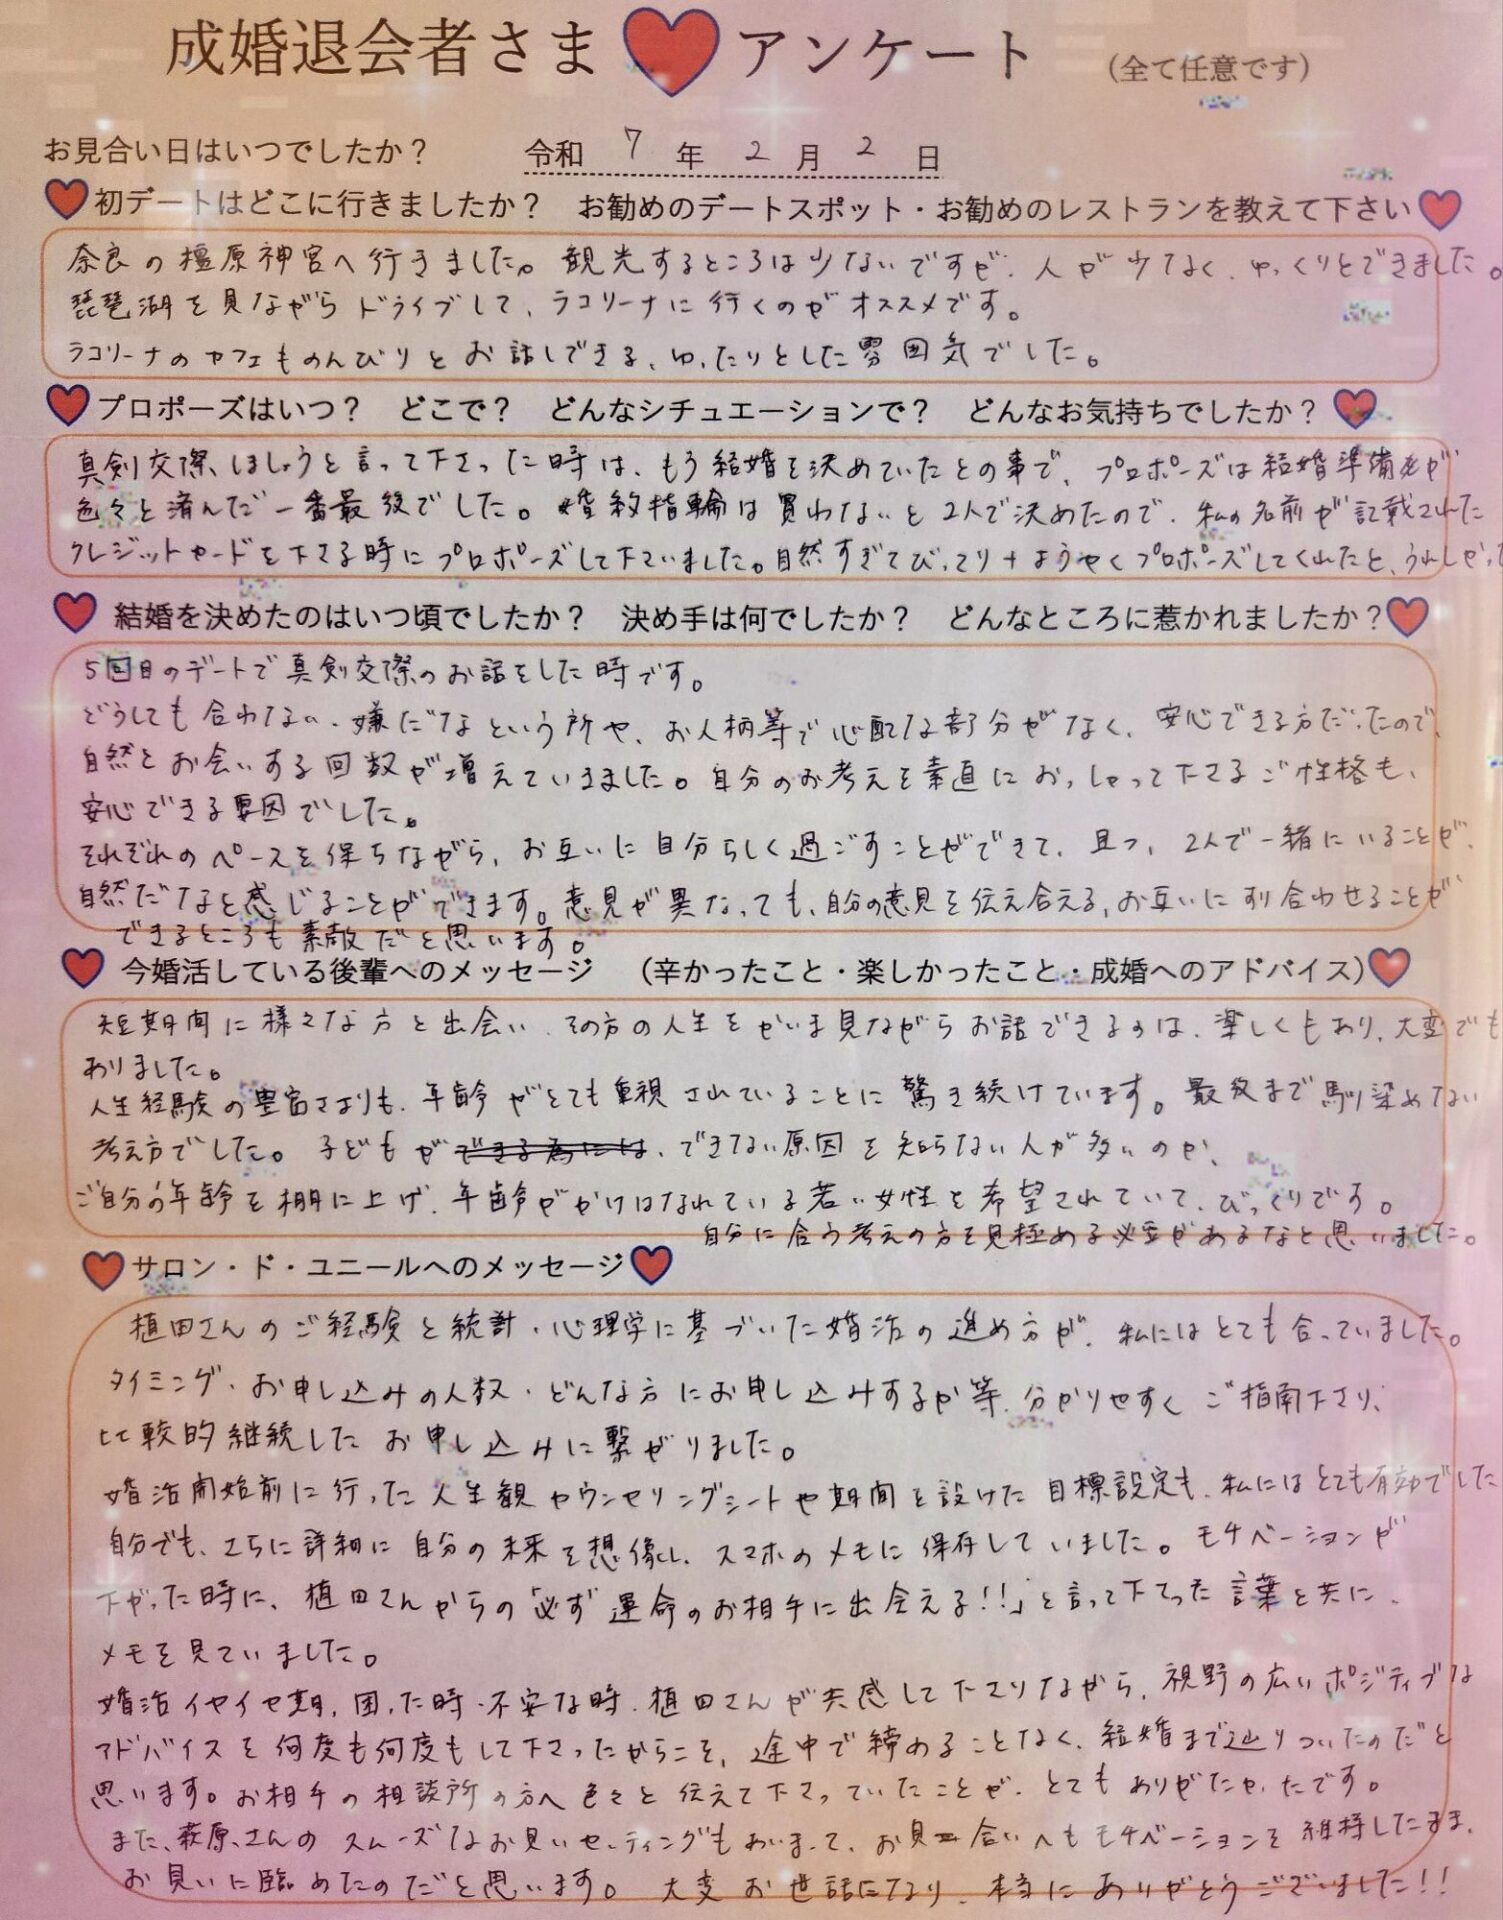 成婚退会者さま アンケート (全て任意です)
お見合い日はいつでしたか? 令和 7 年 2 月 2 日
初デートはどこに行きましたか? お勧めのデートスポット・お勧めのレストランを教えて下さい
奈良の橿原神宮へ行きました。観光するところは少ないですが、人が少なく、ゆっくりとできました。
琵琶湖を見ながらドライブして、ラコリーナに行くのがオススメです。
ラコリーナのカフェものんびりとお話しできる、ゆったりとした雰囲気でした。
プロポーズはいつ? どこで? どんなシチュエーションで? どんなお気持ちでしたか?
真剣交際、しましょうと言って下さった時は、もう結婚を決めていたとの事で、プロポーズは結婚準備が
色々と済んだ一番最後でした。婚約指輪は買わないと2人で決めたので、私の名前が記載された
クレジットカードを下さる時にプロポーズして下さいました。自然すぎてびっくり+ようやくプロポーズしてくれたと、うれしかった
結婚を決めたのはいつ頃でしたか? 決め手は何でしたか? どんなところに惹かれましたか?
5回目のデートで真剣交際のお話をした時です。
どうしても合わない、嫌だなという所や、お人柄等で心配な部分がなく、安心できる方だったので、
自然とお会いする回数が増えていきました。自分のお考えを素直におっしゃって下さるご性格も、
安心できる要因でした。
それぞれのペースを保ちながら、お互いに自分らしく過ごすことができて、且つ、2人で一緒にいることが、
自然だなと感じることができます。意見が異なっても、自分の意見を伝え合える、お互いにすり合わせることが
できるところも素敵だと思います。
今婚活している後輩へのメッセージ (辛かったこと・楽しかったこと・成婚へのアドバイス)
短期間に様々な方と出会い、その方の人生をかいま見ながらお話できるのは、楽しくもあり、大変でも
ありました。
人生経験の豊富さよりも、年齢がとても重視されていることに驚き続けています。最後まで馴染めない
考え方でした。子どもができる為には、できない原因を知らない人が多いのか、
ご自分の年齢を棚に上げ、年齢がかけはなれている若い女性を希望されていて、びっくりです。
自分に合う考えの方を見極める必要があるなと思いました。
サロン・ド・ユニールへのメッセージ
植田さんのご経験と統計・心理学に基づいた婚活の進め方が、私にはとても合っていました。
タイミング・お申し込みの人数・どんな方にお申し込みするか等、分かりやすくご指南下さり、
比較的継続したお申し込みに繋がりました。
婚活開始前に行った人生観カウンセリングシートや期間を設けた目標設定も、私にはとても有効でした
自分でも、さらに詳細に自分の未来を想像し、スマホのメモに保存していました。モチベーションが
下がった時に、植田さんからの「必ず運命のお相手に出会える!!」と言って下さった言葉と共に、
メモを見ていました。
婚活イヤイヤ期、困った時・不安な時、植田さんが共感して下さりながら、視野の広いポジティブな
アドバイスを何度も何度もして下さったからこそ、途中で締めることなく、結婚まで辿りついたのだと
思います。お相手の相談所の方へ色々と伝えて下さっていたことが、とてもありがたかったです。
また、萩原さんのスムーズなお見いセッティングもあいまって、お見合いへもモチベーションを維持したまま、
お見いに臨めたのだと思います。大変お世話になり、本当にありがとうございました!!